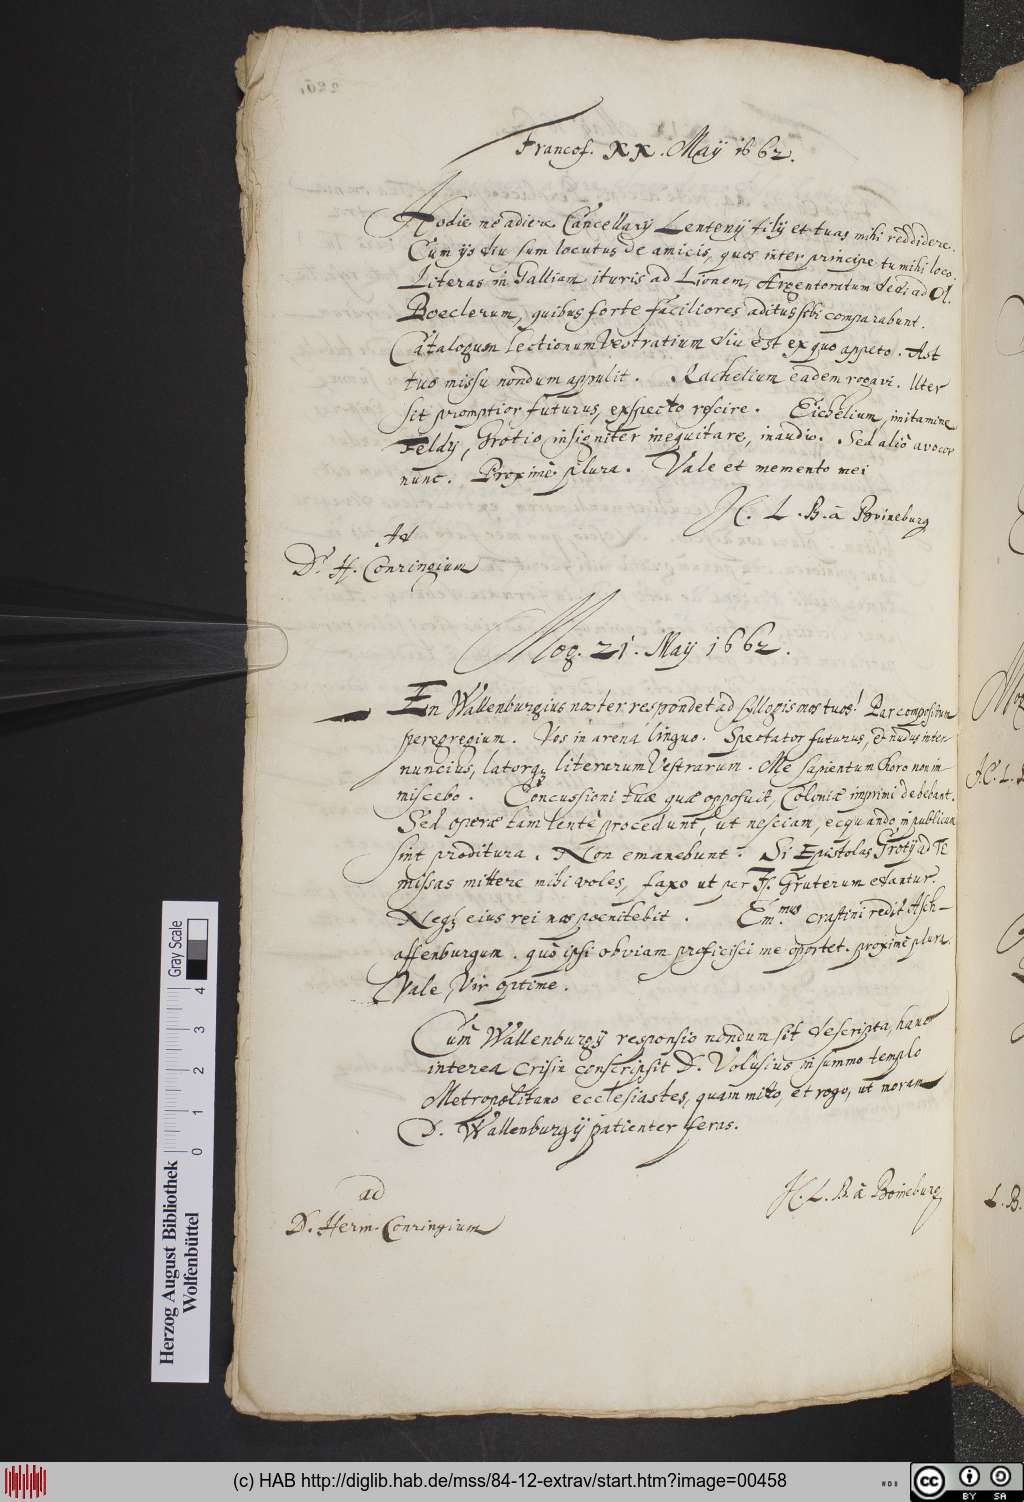 Francof. XX. Maÿ 1662.
Hodie me adiere Cancellarÿ Lentenÿ filÿ et tuas mihi reddidere.
Cum ÿs diu sum locutus de amicis, quos inter principe tu mihi loco.
Literas in Galliam ituris ad Lionem, Argentoratum dedi ad
Boeclerum, quibus forte faciliores aditus sibi comparabunt.
Catalogum lectionum Vestratium diu est ex quo appeto. Ast
tuo missu nondum appulit. Rachelium eadem rogavi. Uter
sit promptior futurus, exspecto rescire. Eichelium, imitamine
Feldÿ, Grotio insigniter inequitare, inaudio. Sed aliò avocor
nunc. Proximè plura. Vale et memento mei
H. L. B. à Boineburg
Ad
Dr. H. Conringium
Mog. 21. May 1662.
En Wallenburgius noster respondet ad sÿllogismos tuos! Par compositum
peregregium. Vos in arena linquo. Spectator futurus, et nudus inter-
nuncius, latorq; literarum Vestrarum. Me sapientum choro non im-
miscebo. Concussioni tuæ quæ opposuit, Coloniæ imprimi debebant.
Sed operæ tam lentè procedunt, ut nesciam, ecquando in publicum
sint proditura. Non emanebunt. Si Epistolas Grotÿ ad TE
missas mittere mihi voles, faxo ut per Js. Gruterum edantur.
Neq; eius rei nos poenitebit. Em.mus crastini redit Asch-
affenburgum. quò ipsi obviam proficisci me oportet. proximè plura.
Vale, Vir optime.
Cum Wallenburgÿ responsio nondum sit descripta, hanc
interea crisin conscripsit D. Volusius in summo templo
Metropolitano ecclesiastes, quam mitto, et rogo, ut moram
D. Wallenburgÿ patienter feras.
H. L. B. à Boineburg
ad
D. Herm. Conringium
L. B.
Herzog August Bibliothek
Wolfenbüttel
0 1 2 3 4
Gray Scale
(c) HAB http://diglib.hab.de/mss/84-12-extrav/start.htm?image=00458
WDB
cc BY SA